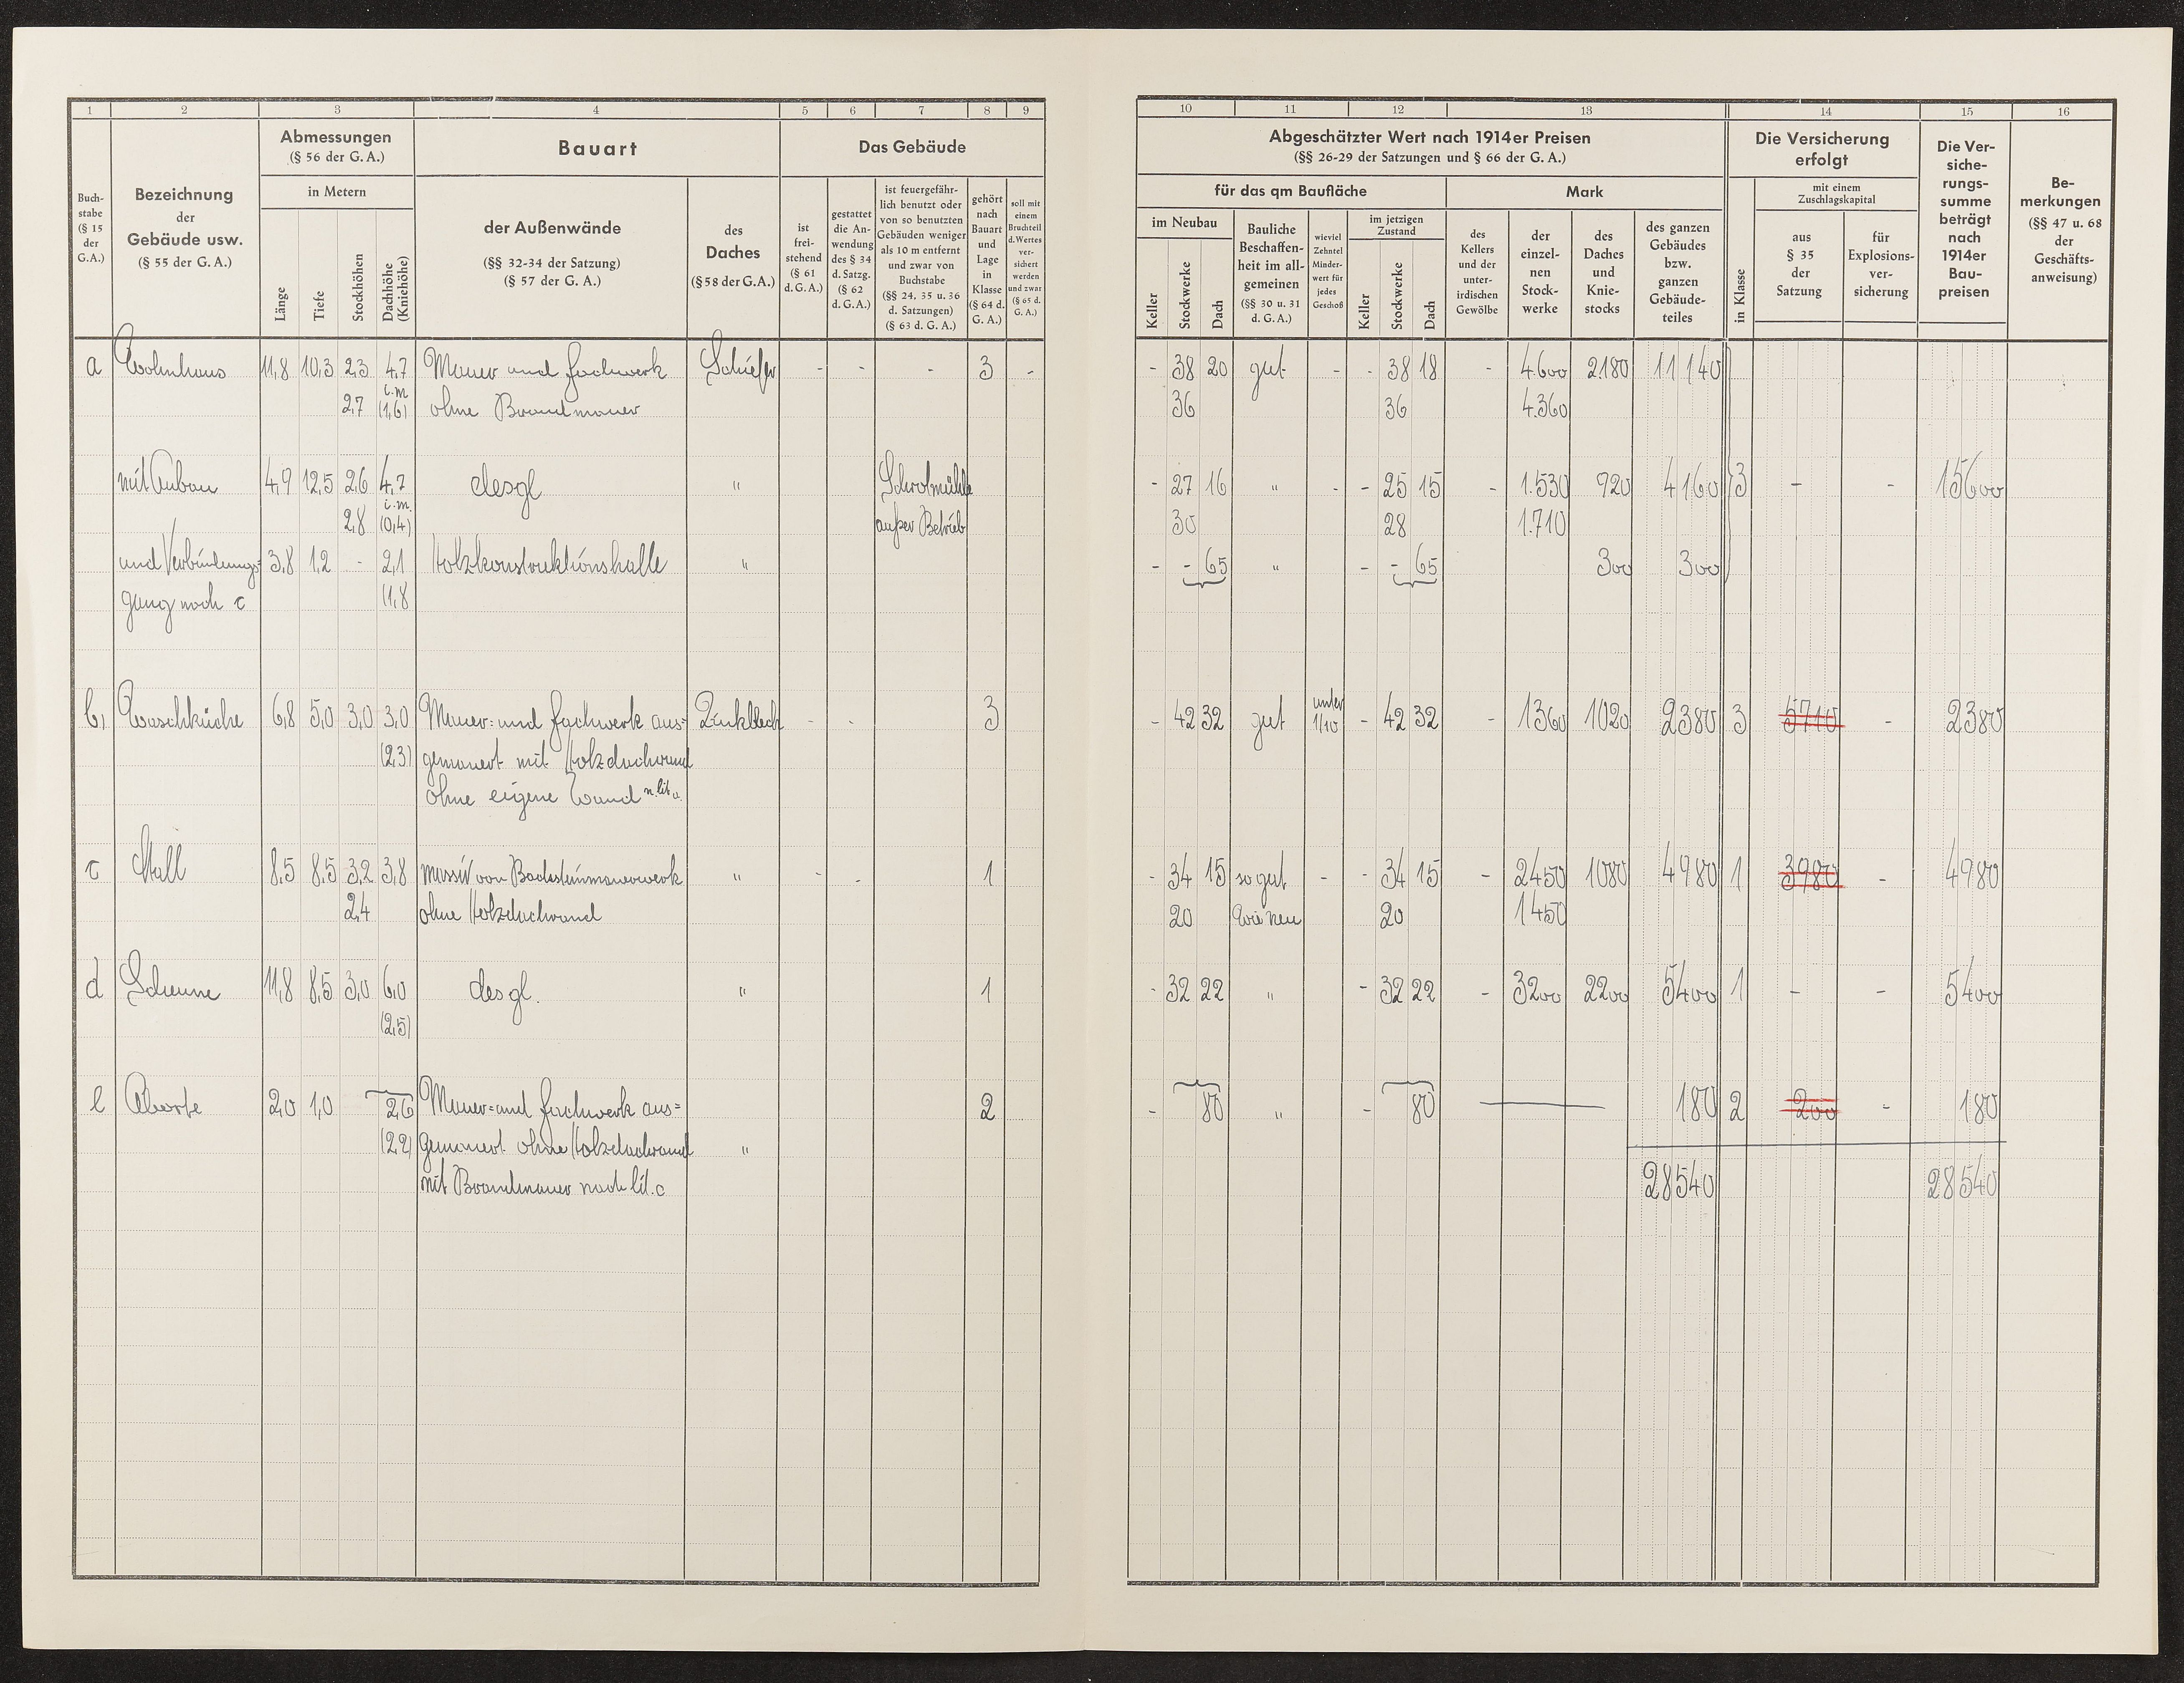 1 2 3 4 5 6 7 8 9
Buch-
stabe
(§ 15
der
G.A.)
Bezeichnung
der
Gebäude usw.
(§ 55 der G. A.)
Abmessungen
(§ 56 der G. A.)
in Metern
Länge
Tiefe
Stockhöhen
Dachhöhe
(Kniehöhe)
Bauart
der Außenwände
(§§ 32-34 der Satzung)
(§ 57 der G. A.)
des
Daches
(§ 58 der G. A.)
Das Gebäude
ist
frei-
stehend
(§ 61
d. G. A.)
gestattet
die An-
wendung
des § 34
d. Satzg.
(§ 62
d. G. A.)
ist feuergefähr-
lich benutzt oder
von so benutzten
Gebäuden weniger
als 10 m entfernt
und zwar von
Buchstabe
(§§ 24, 35 u. 36
d. Satzungen)
(§ 63 d. G. A.)
gehört
nach
Bauart
und
Lage
in
Klasse
(§ 64 d.
G. A.)
soll mit
einem
Bruchteil
d. Wertes
ver-
sichert
werden
und zwar
(§ 65 d.
G. A.)
a Wohnhaus 11,8 10,3 2,3 4,7 Mauer und Fachwerk Schiefer - - - 3 -
i.m
2,7 (1,6) ohne Brandmauer
mit Anbau 4,9 12,5 2,6 4,7 desgl " Schrotmühle
i.m.
2,8 (0,4) außer Betrieb
und Verbindungs- 3,8 1,2 - 2,1 Holzkonstruktionshalle "
gang nach c (1,8
b, Waschküche 6,8 5,0 3,0 3,0 Mauer- und Fachwerk aus- Zinkblech - - 3
(2,3) gemauert mit Holzdachwand
ohne eigene Wand n. lit a.
c Stall 8,5 8,5 3,2 3,8 massiv von Backsteinmauerwerk " - - 1
2,4 ohne Holzdachwand
d Scheune 11,8 8,5 3,0 6,0 desgl. " 1
(2,5)
e Aborte 2,0 1,0 2,6 Mauer- und Fachwerk aus= 2
(2,2) gemauert ohne Holzdachwand "
mit Brandmauer nach lit. c
10 11 12 13 14 15 16
Abgeschätzter Wert nach 1914er Preisen
(§§ 26-29 der Satzungen und § 66 der G. A.)
für das qm Baufläche
im Neubau
Keller
Stockwerke
Dach
Bauliche
Beschaffen-
heit im all-
gemeinen
(§§ 30 u. 31
d. G. A.)
wieviel
Zehntel
Minder-
wert für
jedes
Geschoß
im jetzigen
Zustand
Keller
Stockwerke
Dach
Mark
des
Kellers
und der
unter-
irdischen
Gewölbe
der
einzel-
nen
Stock-
werke
des
Daches
und
Knie-
stocks
des ganzen
Gebäudes
bzw.
ganzen
Gebäude-
teiles
Die Versicherung
erfolgt
in Klasse
mit einem
Zuschlagskapital
aus
§ 35
der
Satzung
für
Explosions-
ver-
sicherung
Die Ver-
siche-
rungs-
summe
beträgt
nach
1914er
Bau-
preisen
Be-
merkungen
(§§ 47 u. 68
der
Geschäfts-
anweisung)
- 38 20 gut - - 38 18 - 4.600 2180 11140
36 36 4.360
- 27 16 " - - 25 15 - 1.530 920 4160 3 - - 15600
30 28 1.710
- - 65 " - - 65 300 300
- 42 32 gut unter 1/10 - 42 32 - 1360 1020 2380 3 5710 - 2380
- 34 15 so gut - - 34 15 - 2450 1080 4980 1 3980 - 4980
20 wie neu 20 1450
- 32 22 " - 32 22 - 3200 2200 5400 1 - - 5400
- 80 " - 80 180 2 200 - 180
28540 28540